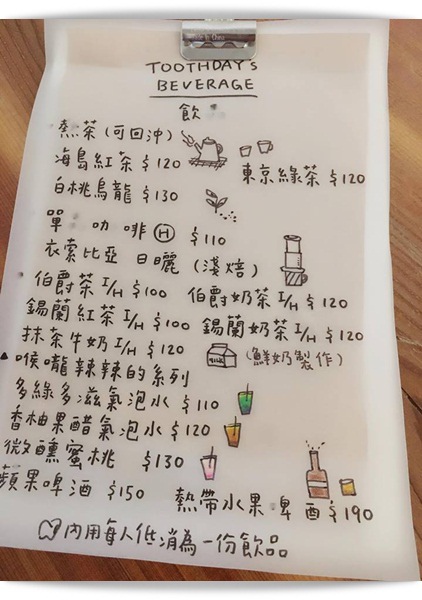 TOOTHDAY's
BEVERAGE
飲
熱茶(可回沖)
海島紅茶 $120 東京綠茶 $120
白桃烏龍 $130
單 咖啡 H $110
衣索比亞 日曬 (淺焙)
伯爵茶 I/H $100 伯爵奶茶 I/H $120
錫蘭紅茶 I/H $100 錫蘭奶茶 I/H $120
抹茶牛奶 I/H $120 MILK (鮮奶製作)
▲喉嚨辣辣的系列
多綠多滋氣泡水 $110
香柚果醋氣泡水 $120
微醺蜜桃 $130
蘋果啤酒 $150 熱帶水果啤酒 $190
內用每人低消為一份飲品